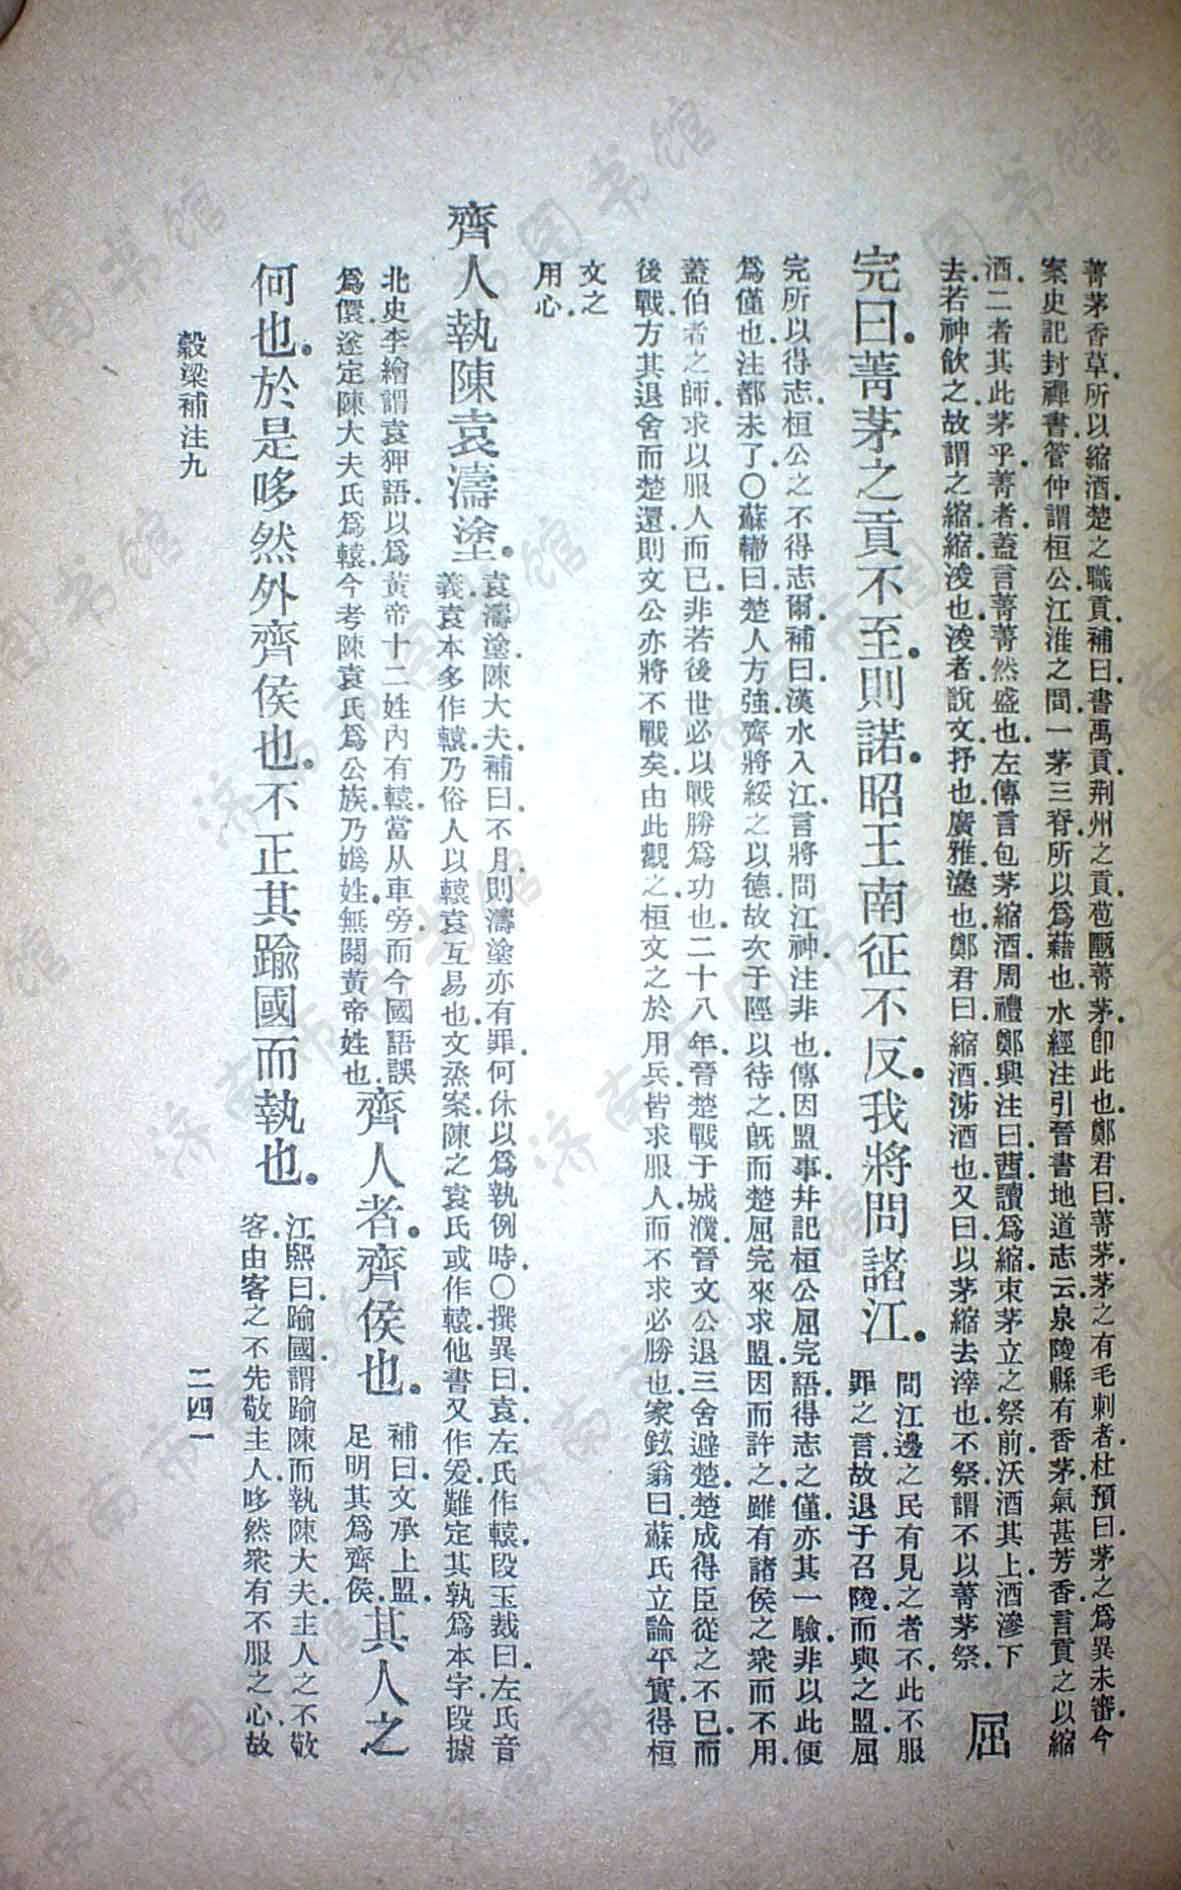 菁茅香草所以縮酒楚之職貢補曰書禹貢荆州之貢苞匭菁茅即此也鄭君曰菁茅茅之有毛刺者杜預曰茅之爲異未審今
案史記封禪書管仲謂桓公江淮之間一茅三脊所以爲藉也水經注引晉書地道志云泉陵縣有香茅氣甚芳香言貢之以縮
酒二者其此茅乎菁者蓋言菁菁然盛也左傳言包茅縮酒周禮鄭興注曰莤讀爲縮束茅立之祭前沃酒其上酒滲下
去若神飲之故謂之縮縮浚也浚者說文抒也廣雅盪也鄭君曰縮酒泲酒也又曰以茅縮去滓也不祭謂不以菁茅祭
屈
完曰菁茅之貢不至則諾昭王南征不反我將問諸江
問江邊之民有見之者不此不服
罪之言故退于召陵而與之盟屈
完所以得志桓公之不得志爾補曰漢水入江言將問江神注非也傳因盟事幷記桓公屈完語得志之僅亦其一驗非以此便
爲僅也注都未了〇蘇轍曰楚人方強齊將綏之以德故次于陘以待之既而楚屈完來求盟因而許之雖有諸侯之衆而不用
蓋伯者之師求以服人而已非若後世必以戰勝爲功也二十八年晉楚戰于城濮晉文公退三舍避楚楚成得臣從之不已而
後戰方其退舍而楚還則文公亦將不戰矣由此觀之桓文之於用兵皆求服人而不求必勝也家鉉翁曰蘇氏立論平實得桓
文之
用心
齊人執陳袁濤塗
袁濤塗陳大夫補曰不月則濤塗亦有罪何休以爲執例時〇撰異曰袁左氏作轅段玉裁曰左氏音
義袁本多作轅乃俗人以轅袁互易也文烝案陳之袁氏或作轅他書又作爰難定其孰爲本字段據
北史李繪謂袁狎語以爲黃帝十二姓內有轅當从車旁而今國語誤
爲儇遂定陳大夫氏爲轅今考陳袁氏爲公族乃嬀姓無關黃帝姓也
齊人者齊侯也
補曰文承上盟
足明其爲齊侯
其人之
何也於是哆然外齊侯也不正其踰國而執也
江熙曰踰國謂踰陳而執陳大夫主人之不敬
客由客之不先敬主人哆然衆有不服之心故
穀梁補注九
二四一